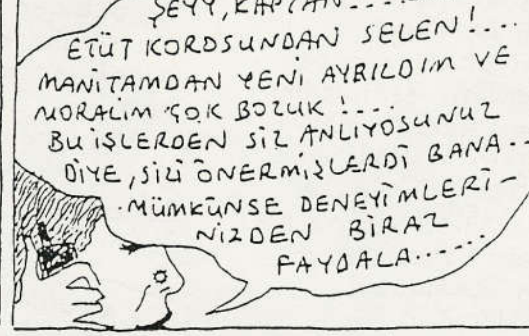 ŞEYY, KAPTAN.....
ETÜT KOROSUNDAN SELEN!....
MANİTAMDAN YENİ AYRILDIM VE
MORALİM ÇOK BOZUK!...
BU İŞLERDEN SİZ ANLIYOSUNUZ
DİYE, SİZİ ÖNERMİŞLERDİ BANA..
MÜMKÜNSE DENEYİMLERİ-
NİZDEN BİRAZ
FAYDALA......